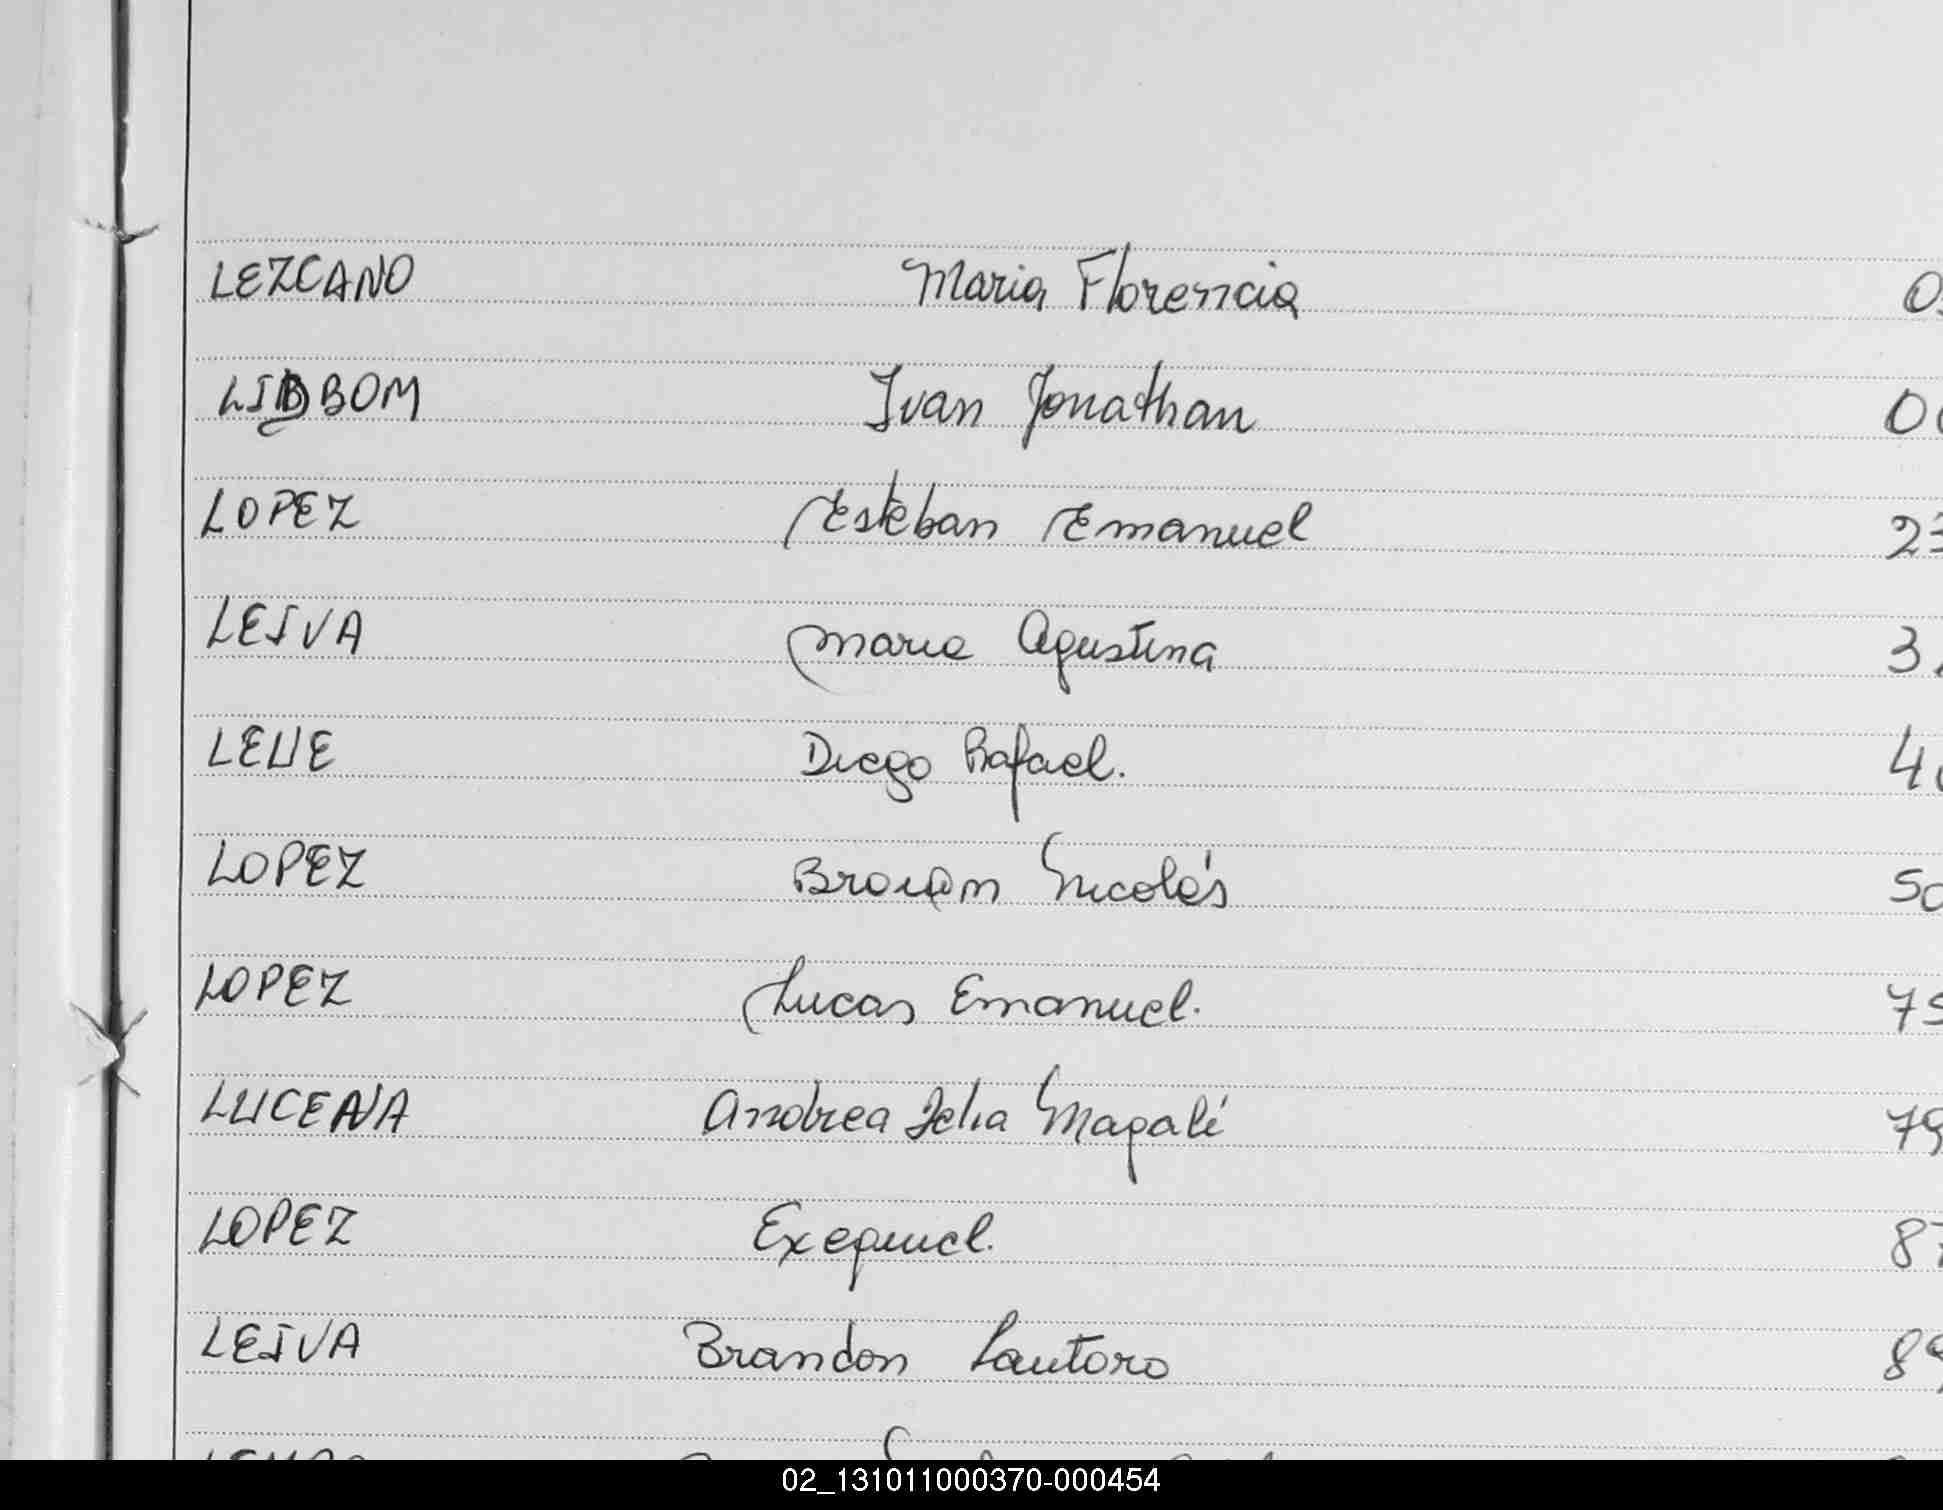 LEZCANO Maria Florencia
LIBBOM Ivan Jonathan
LOPEZ Esteban Emanuel
LEIVA Maria Agustina
LEUE Diego Rafael.
LOPEZ Nicolás
LOPEZ Lucas Emanuel.
LUCENA Andrea Magalí
LOPEZ Exequiel.
LEIVA Brandon Lautaro
02_131011000370-000454